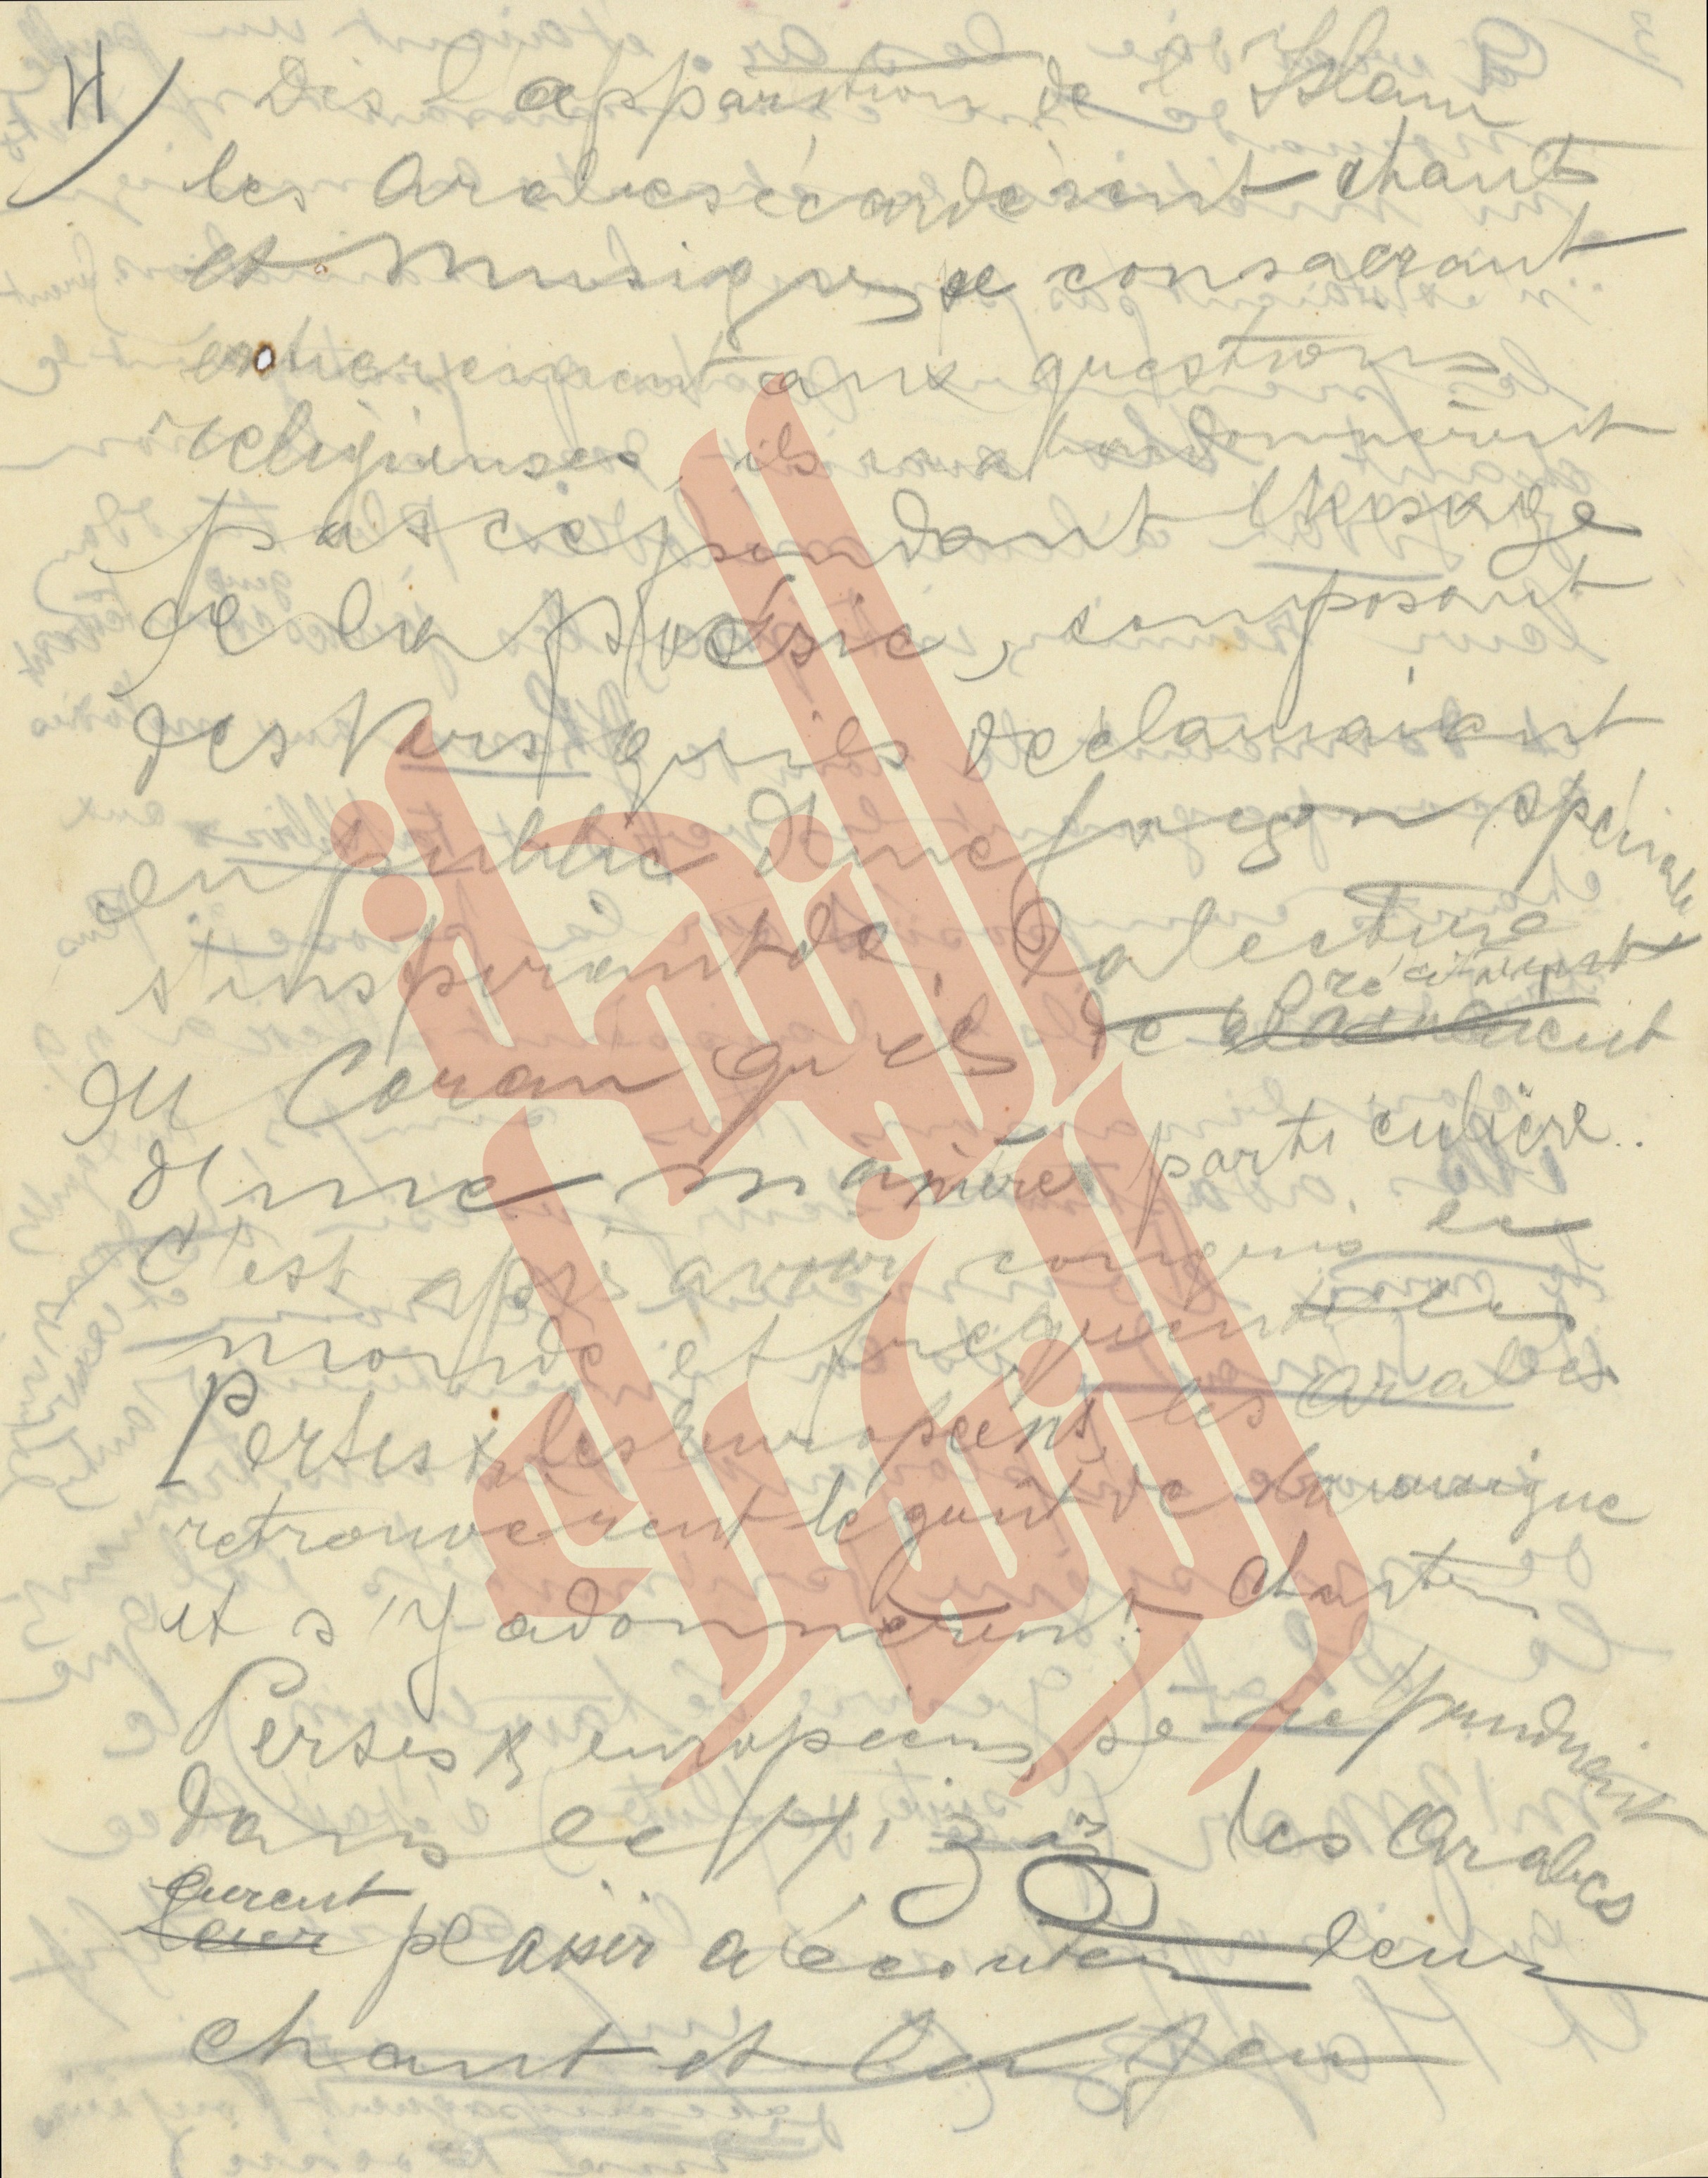 4) Dès l'apparition de l'Islam
les Arabes écardèrent chant
et musique se consacrant
entierement aux questions
religieuses, ils n'abandonnerent
pas cependant l'usage
de la poésie, composant
des vers qu'ils déclamaient
en public d'une façon spéciale
s'inspirant de la lecture
récitaient
du Coran qu'ils declamaient
d'une manière particulière.
C'est après avoir conquis le
monde et frequenté les
Perses & les européens, les arabes
retrouverent le goût de la musique
et s'y adonnèrent. Chanteurs
Perses & européens, se répandirent
dans le H'gaz les Arabes
eurent
leur plaisir à écouter leur
chant et leur jeu